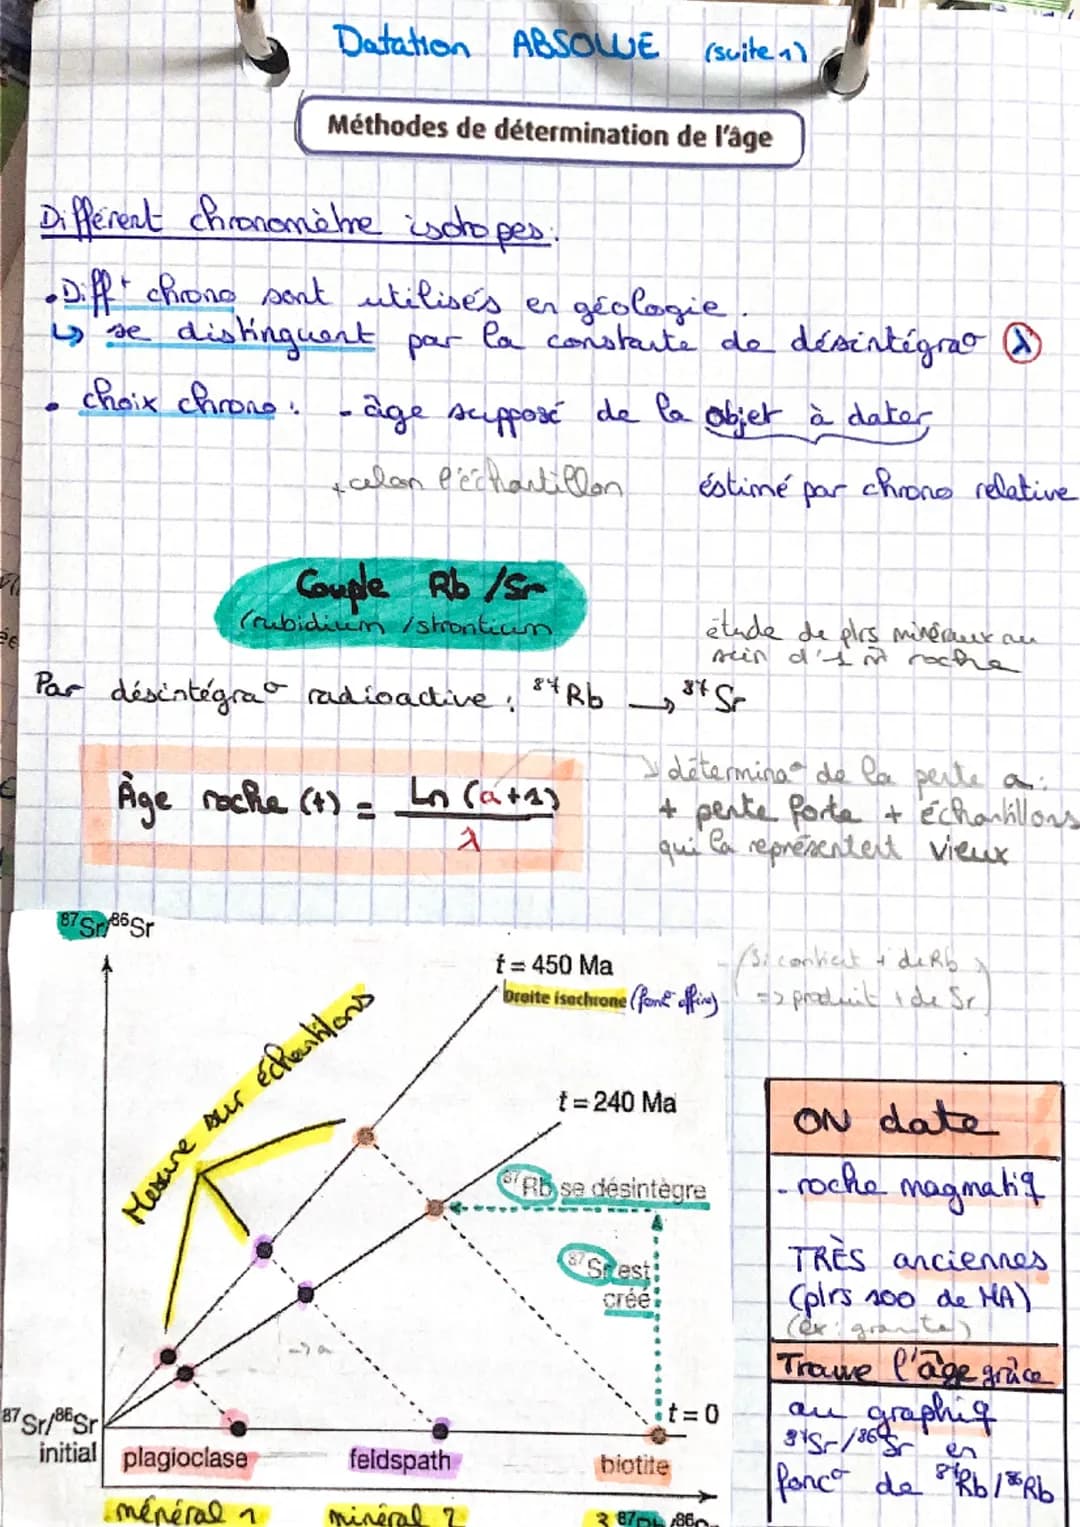 Datation ABSOLUE (suite 1)
Méthodes de détermination de l'âge
Différent chronomètre isotopes:
• Diffᵗ chrono sont utilisés en géologie.
↳ se distinguent par la constante de désintégra° (λ)
• choix chrono: - âge supposé de la objet à dater
+ selon l'échantillon
éstimé par chrono relative
Couple Rb /Sr
(rubidium /strontium
étude de plrs minéraux au
sein d'1 m̂ roche
Par désintégra° radioactive: ⁸⁷Rb → ⁸⁷Sr
Âge roche (t) = Ln (a+1) / λ
détermina° de la pente a:
+ pente forte + échantillons
qui la représentent vieux
⁸⁷Sr/⁸⁶Sr
t = 450 Ma
Droite isochrone (fonc° affine)
(Si contient + de Rb
=> produit + de Sr)
Mesure sur échantillons
t = 240 Ma
⁸⁷Rb se désintègre
⁸⁷Sr est
créé
-> a
t = 0
⁸⁷Sr/⁸⁶Sr
initial
plagioclase
feldspath
biotite
ménéral 1
minéral 2
3
ON date
- roche magmatiq
TRÈS anciennes
(plrs 100 de MA)
(ex: granite)
Trouve l'âge grâce
au graphiq
⁸⁷Sr/⁸⁶Sr en
fonc° de ⁸⁷Rb/⁸⁶Rb